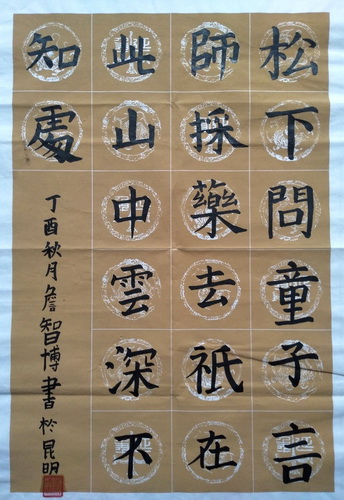 松下問童子言
師採藥去祇在
此山中雲深不
知處
丁酉秋月詹智博書於昆明